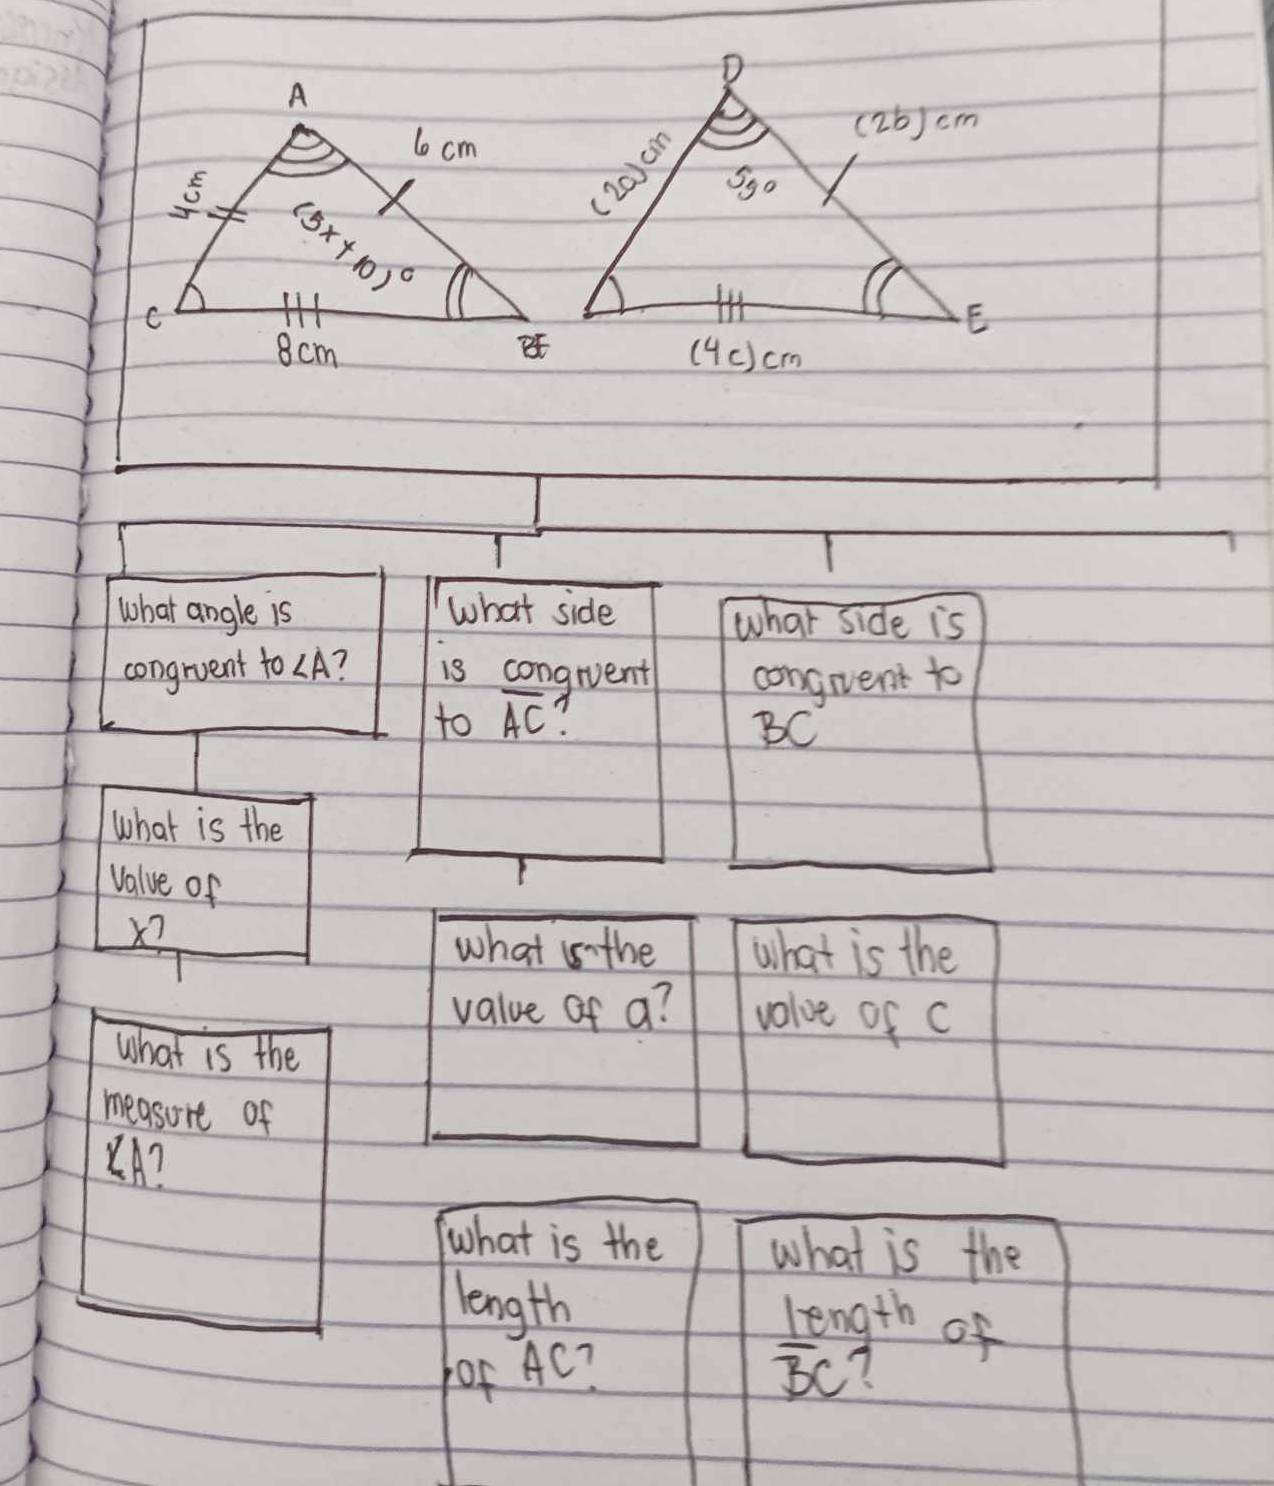 A
D
6 cm
(2b) cm
4cm
(5x + 10)°
(2a) cm
59°
C
E
8cm
(4c) cm
What angle is
congruent to <A?
What side
is congruent
to AC?
What side is
congruent to
BC
What is the
Value of
x?
What is the
value of a?
What is the
value of c
What is the
measure of
<A?
What is the
length
of AC?
What is the
length of
BC?